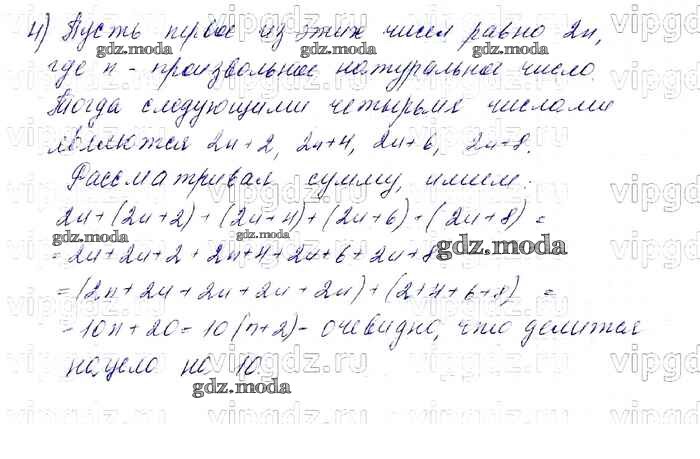 4) Пусть первое из этих чисел равно 2n,
где n - произвольное натуральное число.
Тогда следующими четырьмя числами
являются 2n+2, 2n+4, 2n+6, 2n+8.
Рассматривая сумму, имеем:
2n+(2n+2)+(2n+4)+(2n+6)+(2n+8) =
= 2n+2n+2+2n+4+2n+6+2n+8
=(2n+2n+2n+2n+2n)+(2+4+6+8) =
=10n+20=10(n+2)- очевидно, что делится
нацело на 10.
gdz.moda
gdz.moda
gdz.moda
gdz.moda
gdz.moda
gdz.moda
gdz.moda
vipgdz.ru